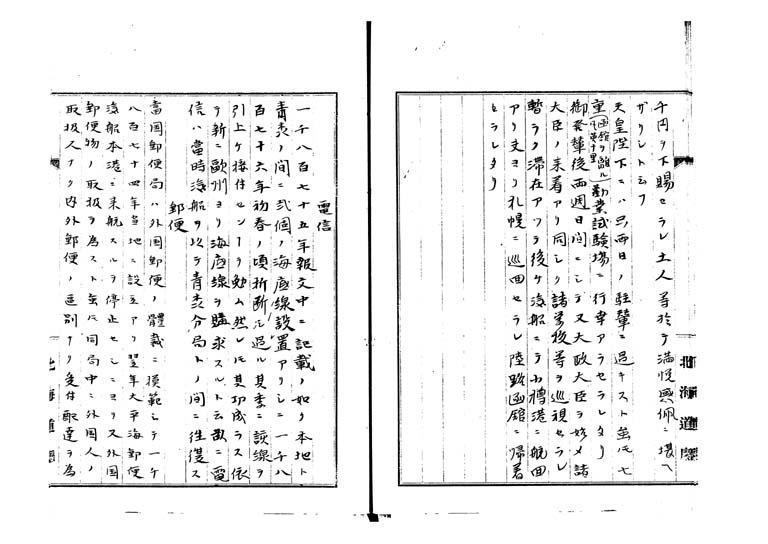 千円ヲ下賜セラレ土人等於テ満悦感佩ニ堪ヘ
サリシト云フ
天皇陛下ニハ只両日ノ駐輦ニ過キスト虽𪜈七
重(函館ヲ離ル凡英十里)勧業試験場ニ行幸アラセラレタリ
御発輦後両週日間ニシテ又大政大臣ヲ始メ諸
大臣ノ来着アリ同シク諸学校等ヲ巡視セラレ
暫ラク滞在アツテ後チ滊船ニテ小樽港ニ航回
アリ夫ヨリ札幌ニ巡回セラレ陸路函館ニ帰着
セラレタリ
電信
一千八百七十五年報文中ニ記載ノ如ク本地ト
青森ノ間ニ弐個ノ海底線設置アリシニ一千八
百七十六年初春ノ頃折断シ過ル其季ニ該線ヲ
引上ケ接合センヿヲ勉ム然レ𪜈其功成ラス依
テ新ニ歐州ヨリ海底線ヲ購求スルト云故ニ電
信ハ當時滊船ヲ以テ青森分局トノ間ニ往復ス
郵便
當国郵便局ハ外国郵便ノ體裁ニ模範シテ一千
八百七十四年当地ニ設立アリ翌年大平海郵便
滊船本港ニ来航スルヲ停止セシニヨリ又外国
郵便物ノ取扱ヲ為スト虽𪜈同局中ニ外国人ノ
取扱人ナク内外郵便ノ区別ナク受付配達ヲ為
北海道廳
北海道廳